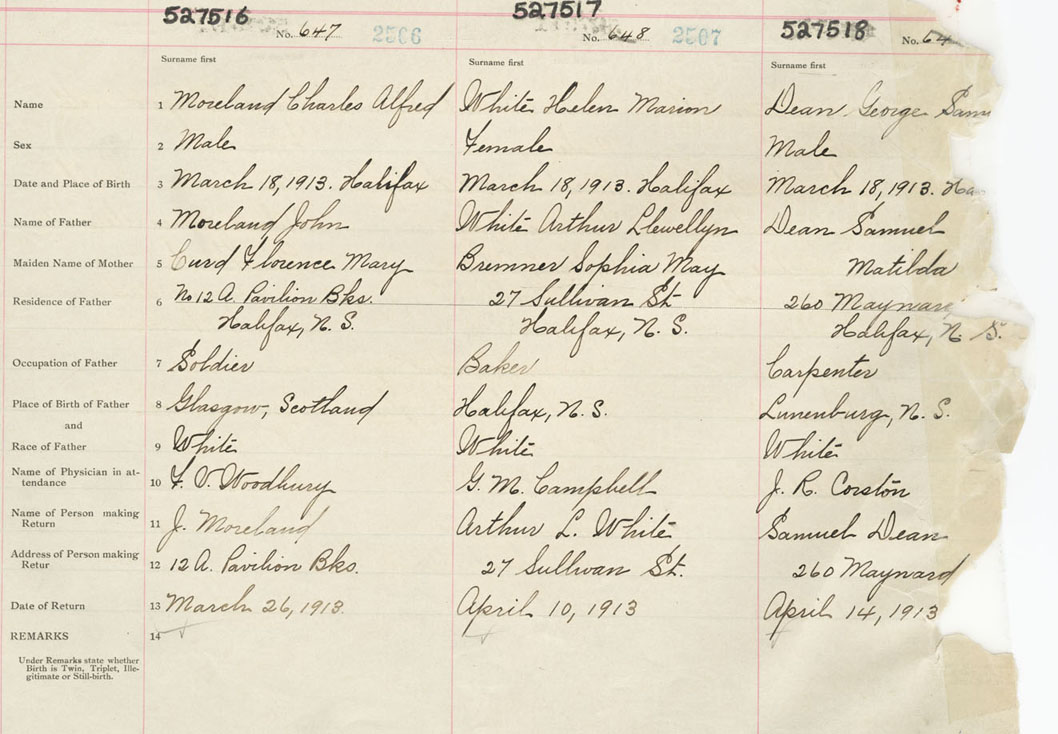 527516 527517 527518
No. 647 2506 No. 648 2507 No. 64
Surname first Surname first Surname first
Name 1 Moreland Charles Alfred White Helen Marion Dean George Sam
Sex 2 Male Female Male
Date and Place of Birth 3 March 18, 1913. Halifax March 18, 1913. Halifax March 18, 1913. Ha
Name of Father 4 Moreland John White Arthur Llewellyn Dean Samuel
Maiden Name of Mother 5 Curd Florence Mary Bremner Sophia May Matilda
Residence of Father 6 No 12 A. Pavilion Bks. 27 Sullivan St. 260 Maynard
Halifax, N. S. Halifax, N. S. Halifax, N. S.
Occupation of Father 7 Soldier Baker Carpenter
Place of Birth of Father 8 Glasgow, Scotland Halifax, N. S. Lunenburg, N. S.
and
Race of Father 9 White White White
Name of Physician in at-
tendance 10 F. V. Woodbury G. M. Campbell J. R. Corston
Name of Person making
Return 11 J. Moreland Arthur L. White Samuel Dean
Address of Person making
Retur 12 12 A. Pavilion Bks. 27 Sullivan St. 260 Maynard
Date of Return 13 March 26, 1913. April 10, 1913 April 14, 1913
REMARKS 14
Under Remarks state whether
Birth is Twin, Triplet, Ille-
gitimate or Still-birth.